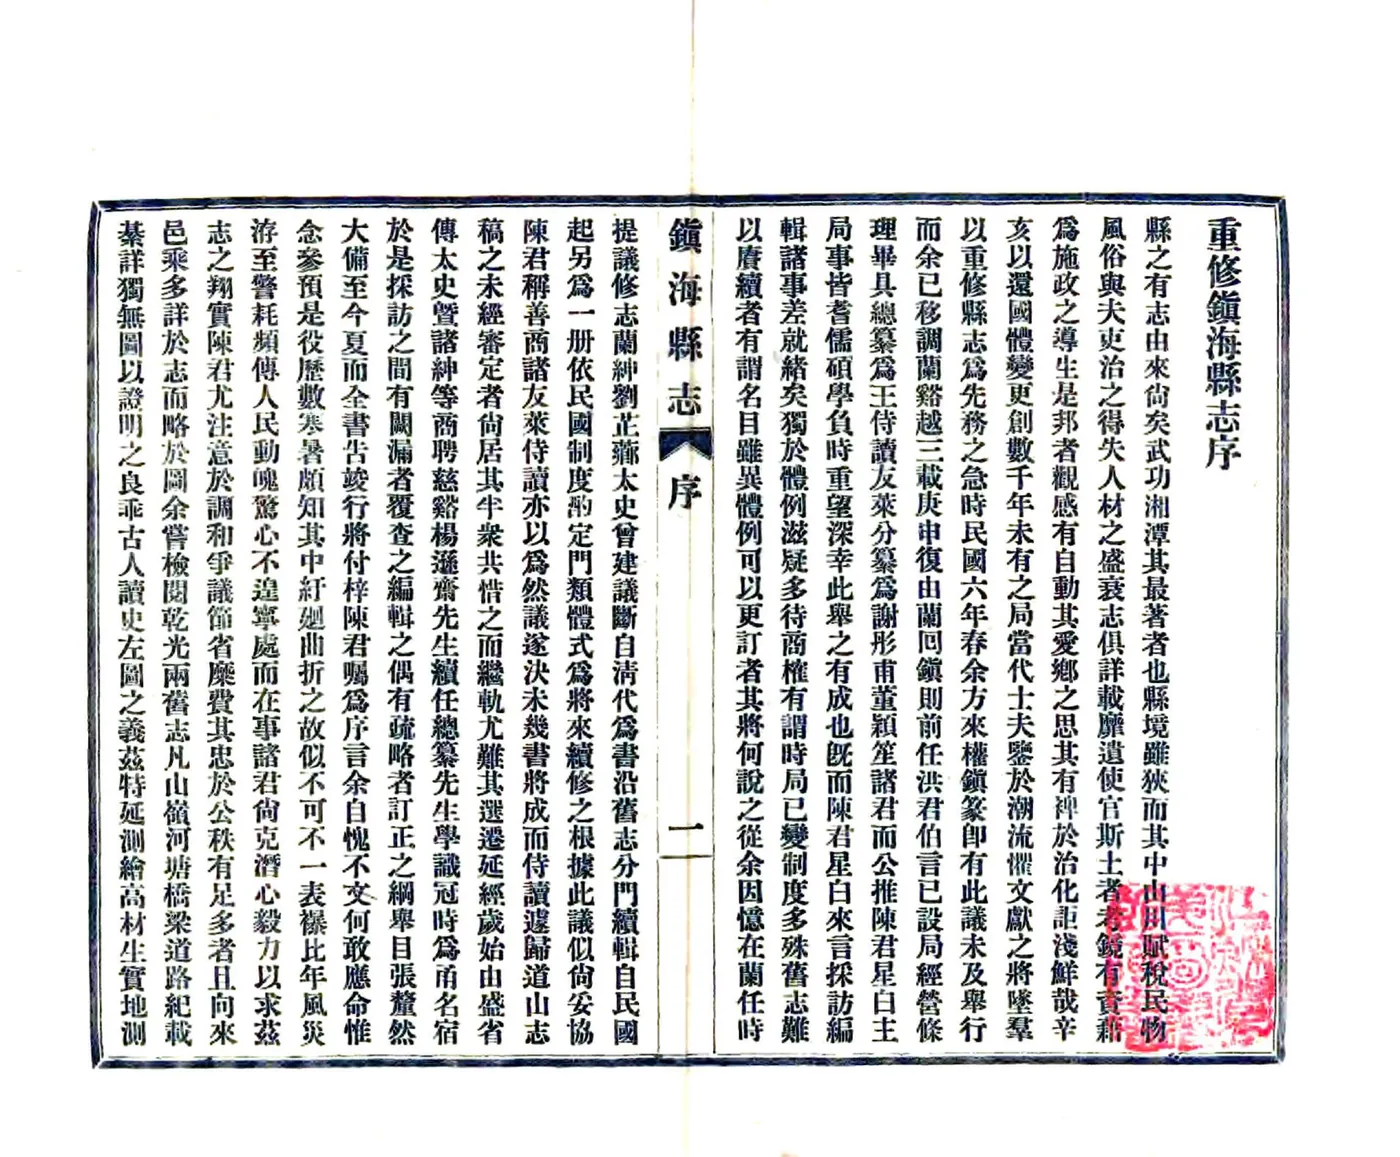 重修鎭海縣志序
縣之有志由來尙矣武功湘潭其最著者也縣境雖狹而其中山川賦稅民物
風俗與夫吏治之得失人材之盛衰志俱詳載靡遺使官斯土者考鏡有資藉
爲施政之導生是邦者觀感有自動其愛鄉之思其有裨於治化詎淺鮮哉辛
亥以還國體變更創數千年未有之局當代士夫鑒於潮流懼文獻之將墜羣
以重修縣志爲先務之急時民國六年春余方來權鎭篆卽有此議未及舉行
而余已移調蘭谿越三載庚申復由蘭回鎭則前任洪君伯言已設局經營條
理畢具總纂爲王侍讀友萊分纂爲謝彤甫董穎笙諸君而公推陳君星白主
局事皆耆儒碩學負時重望深幸此舉之有成也旣而陳君星白來言採訪編
輯諸事差就緒矣獨於體例滋疑多待商榷有謂時局已變制度多殊舊志難
以賡續者有謂名目雖異體例可以更訂者其將何說之從余因憶在蘭任時
鎭海縣志 序 一
提議修志蘭紳劉芷薌太史曾建議斷自淸代爲書沿舊志分門續輯自民國
起另爲一册依民國制度酌定門類體式爲將來續修之根據此議似尙妥協
陳君稱善商諸友萊侍讀亦以爲然議遂決未幾書將成而侍讀遽歸道山志
稿之未經審定者尙居其半衆共惜之而繼軌尤難其選遷延經歲始由盛省
傳太史曁諸紳等商聘慈谿楊遜齋先生續任總纂先生學識冠時爲甬名宿
於是採訪之間有闕漏者覆查之編輯之偶有疏略者訂正之綱舉目張釐然
大備至今夏而全書告竣行將付梓陳君囑爲序言余自愧不文何敢應命惟
念參預是役歷數寒暑頗知其中紆廻曲折之故似不可不一表襮比年風災
洊至警耗頻傳人民動魄驚心不遑寧處而在事諸君尙克潛心毅力以求茲
志之翔實陳君尤注意於調和爭議節省糜費其忠於公秩有足多者且向來
邑乘多詳於志而略於圖余嘗檢閱乾光兩舊志凡山嶺河塘橋梁道路紀載
綦詳獨無圖以證明之良乖古人讀史左圖之義茲特延測繪高材生實地測